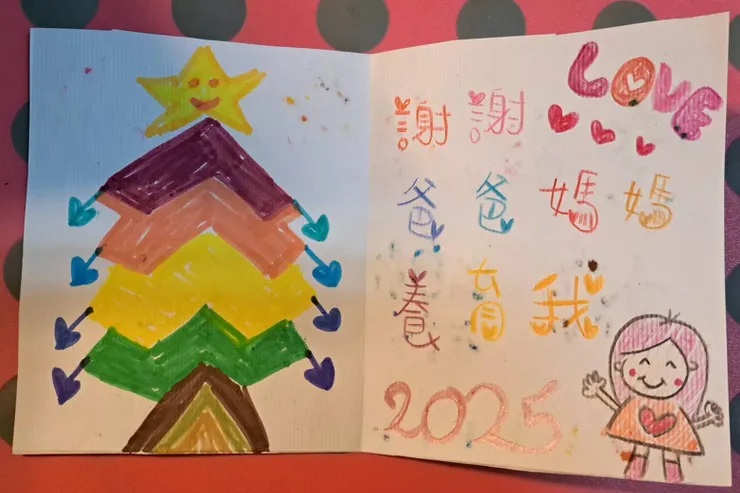 LOVE
謝謝
爸爸媽媽
養育我
2025